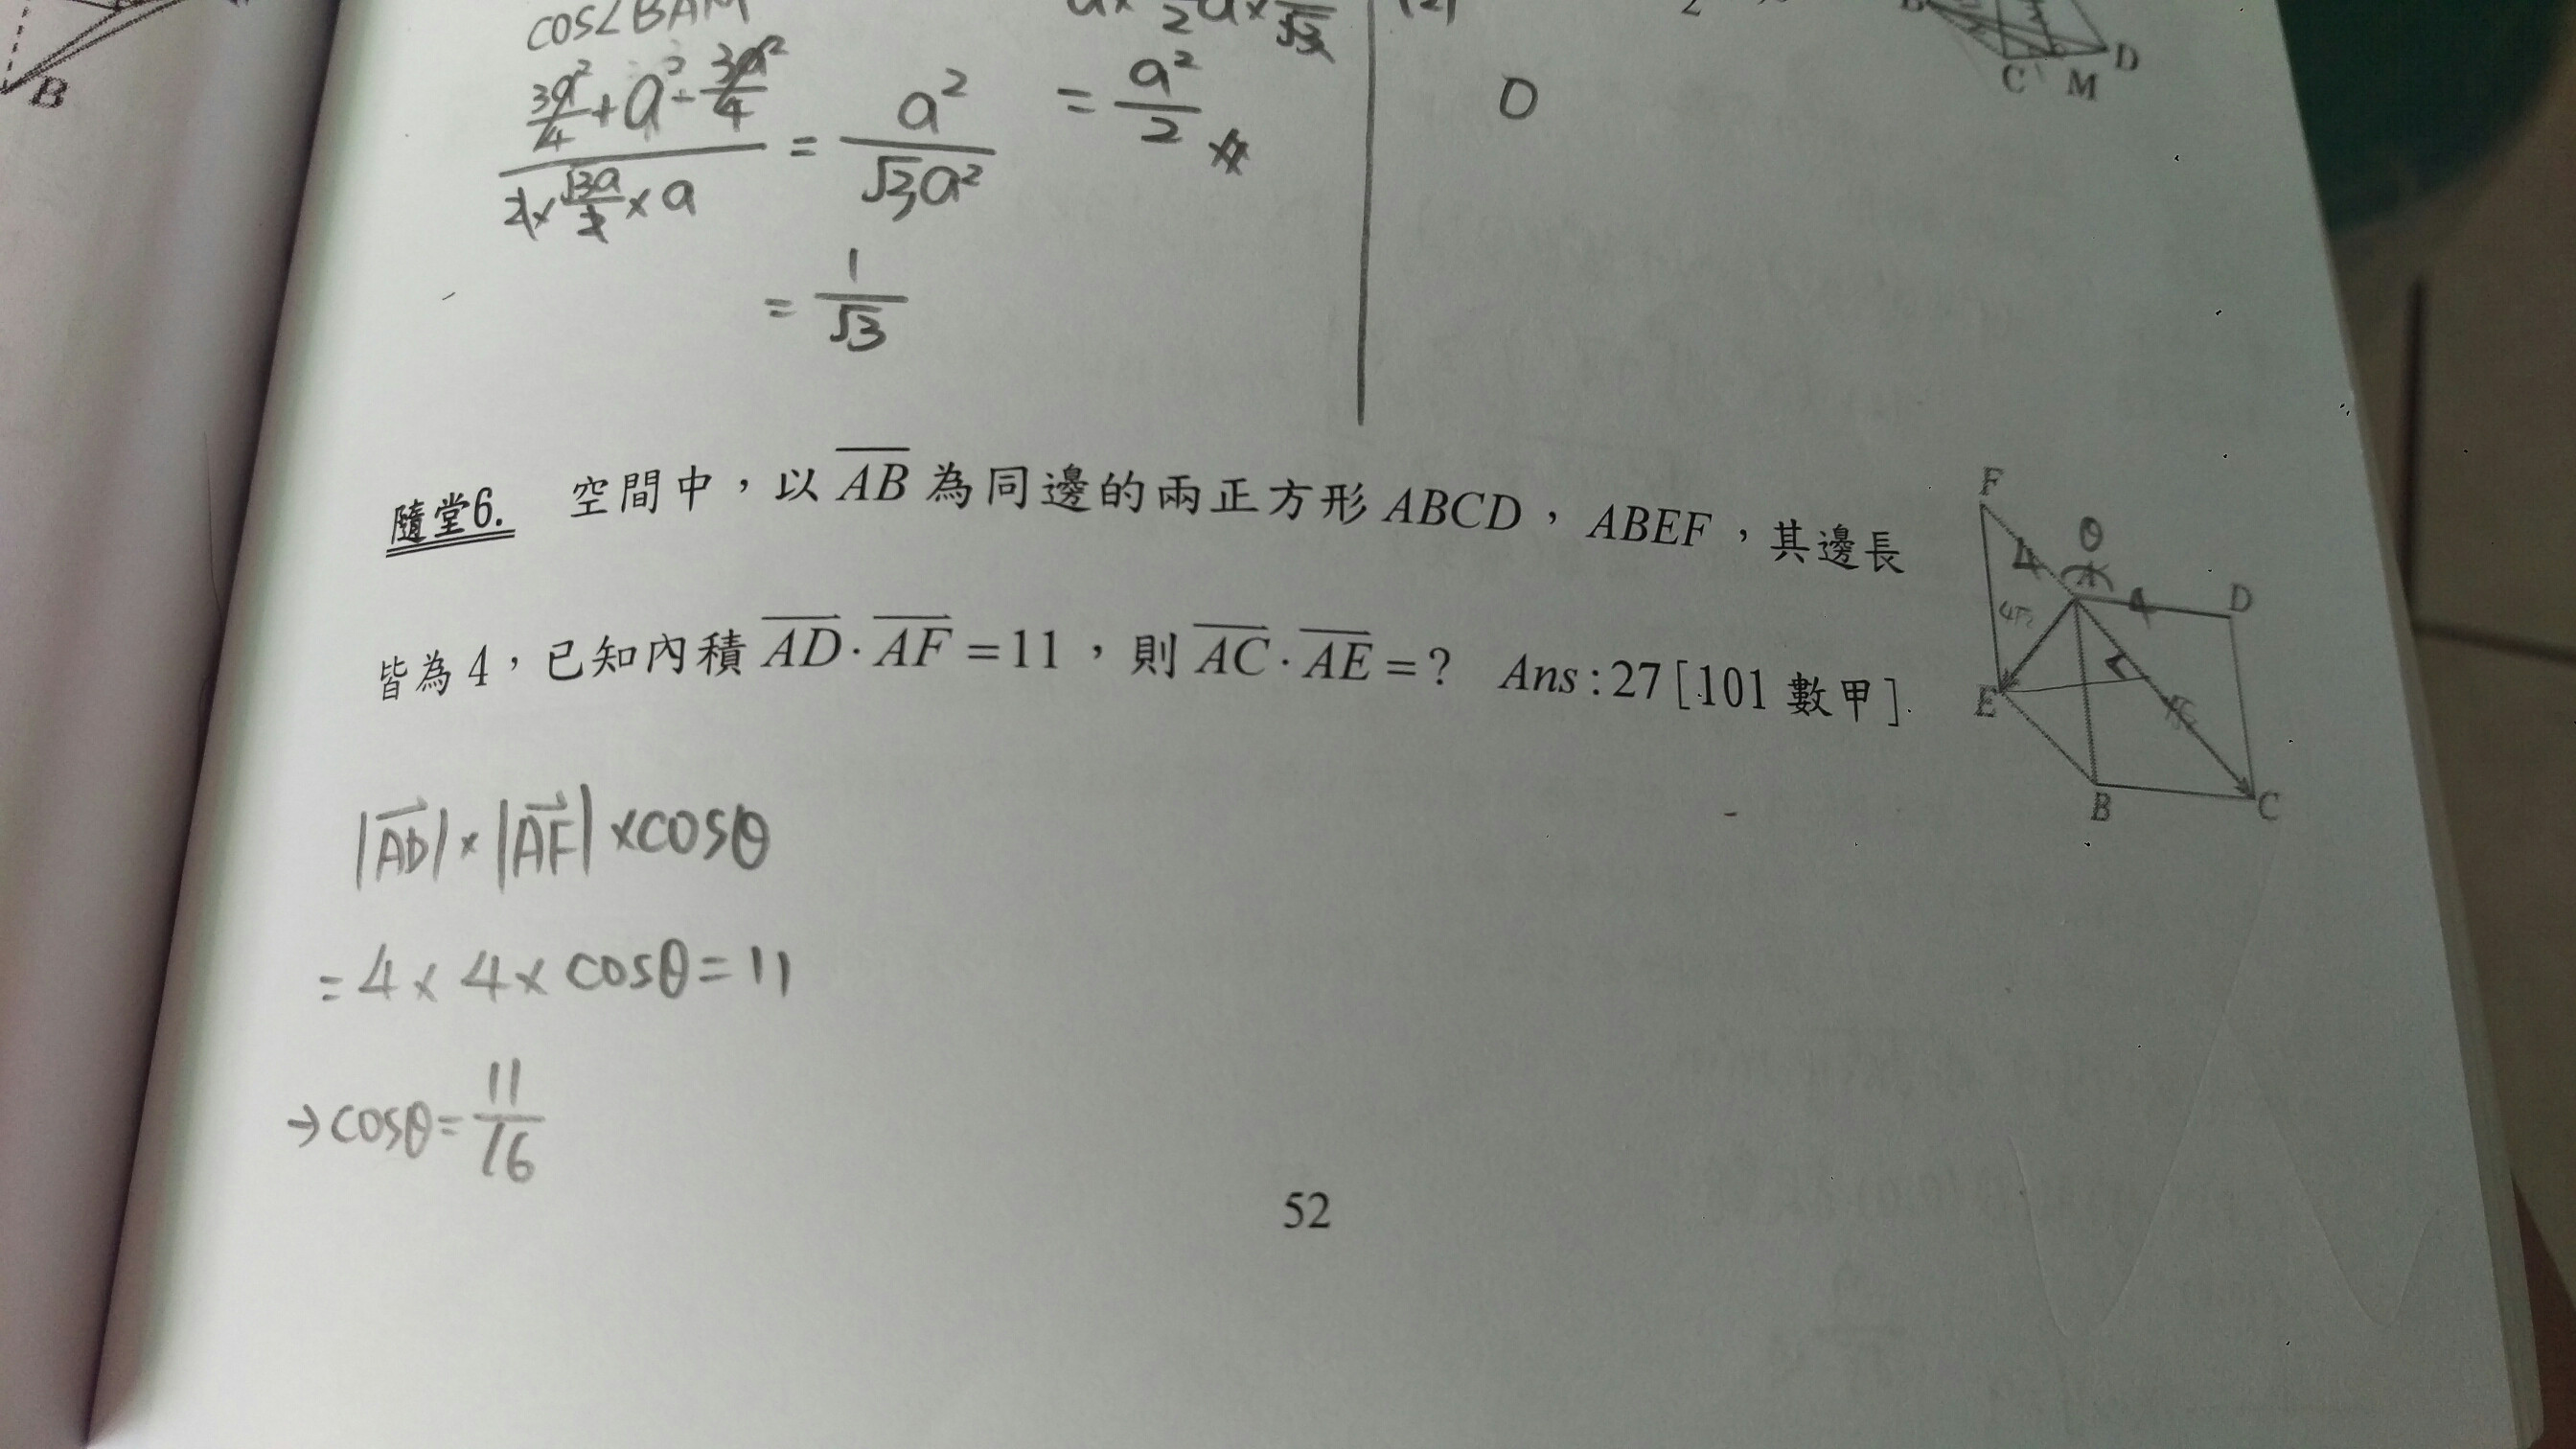 B
cos∠BAM
3a²/4 + a² - 3a²/4
2 × √3a/2 × a
= a²/√3a²
= 1/√3
= a²/2
(2)
0
D
C M
隨堂6. 空間中，以 AB 為同邊的兩正方形 ABCD，ABEF，其邊長
皆為 4，已知內積 AD · AF = 11，則 AC · AE = ? Ans : 27 [101 數甲].
F
θ
4
A
4
D
E
B
C
|AD| × |AF| × cosθ
= 4 × 4 × cosθ = 11
→ cosθ = 11/16
52